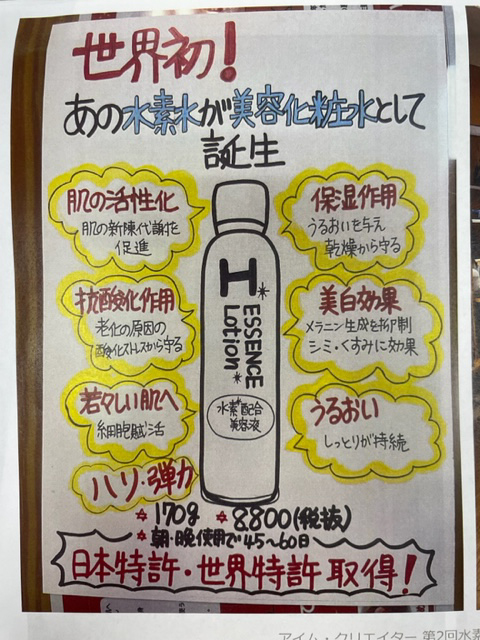 世界初!
あの水素水が美容化粧水として
誕生
肌の活性化
肌の新陳代謝を
促進
抗酸化作用
老化の原因の
酸化ストレスから守る
若々しい肌へ
細胞賦活
ハリ・弾力
H
ESSENCE
Lotion
水素配合
美容液
保湿作用
うるおいを与え
乾燥から守る
美白効果
メラニン生成を抑制
シミ・くすみに効果
うるおい
しっとりが持続
170g 8,800(税抜)
朝・晩使用で45~60日
日本特許・世界特許取得!
アイム・クリエイター 第2回水素